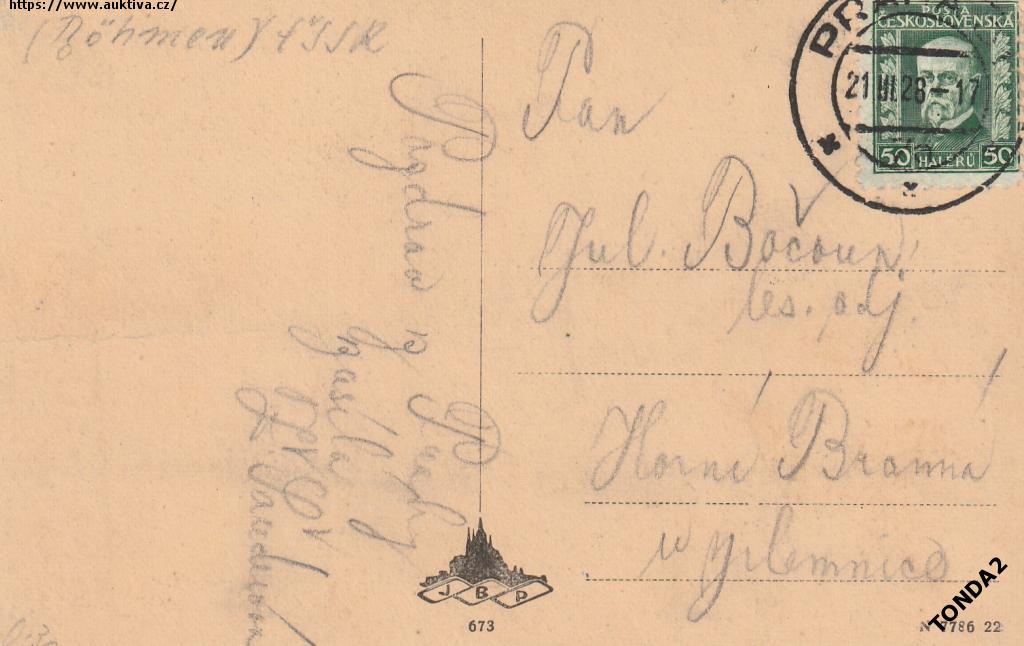 https://www.auktiva.cz/
(Böhmen) ČSSR
Pozdrav z Prahy
zasílá
Pan
Jul. Bočoun
les. adj.
Horní Branná
u Jilemnice
PRAHA
21.VI.28-17
POŠTA
ČESKOSLOVENSKÁ
50 HALÉŘŮ 50
J B P
673
N 7786 22
TONDA2